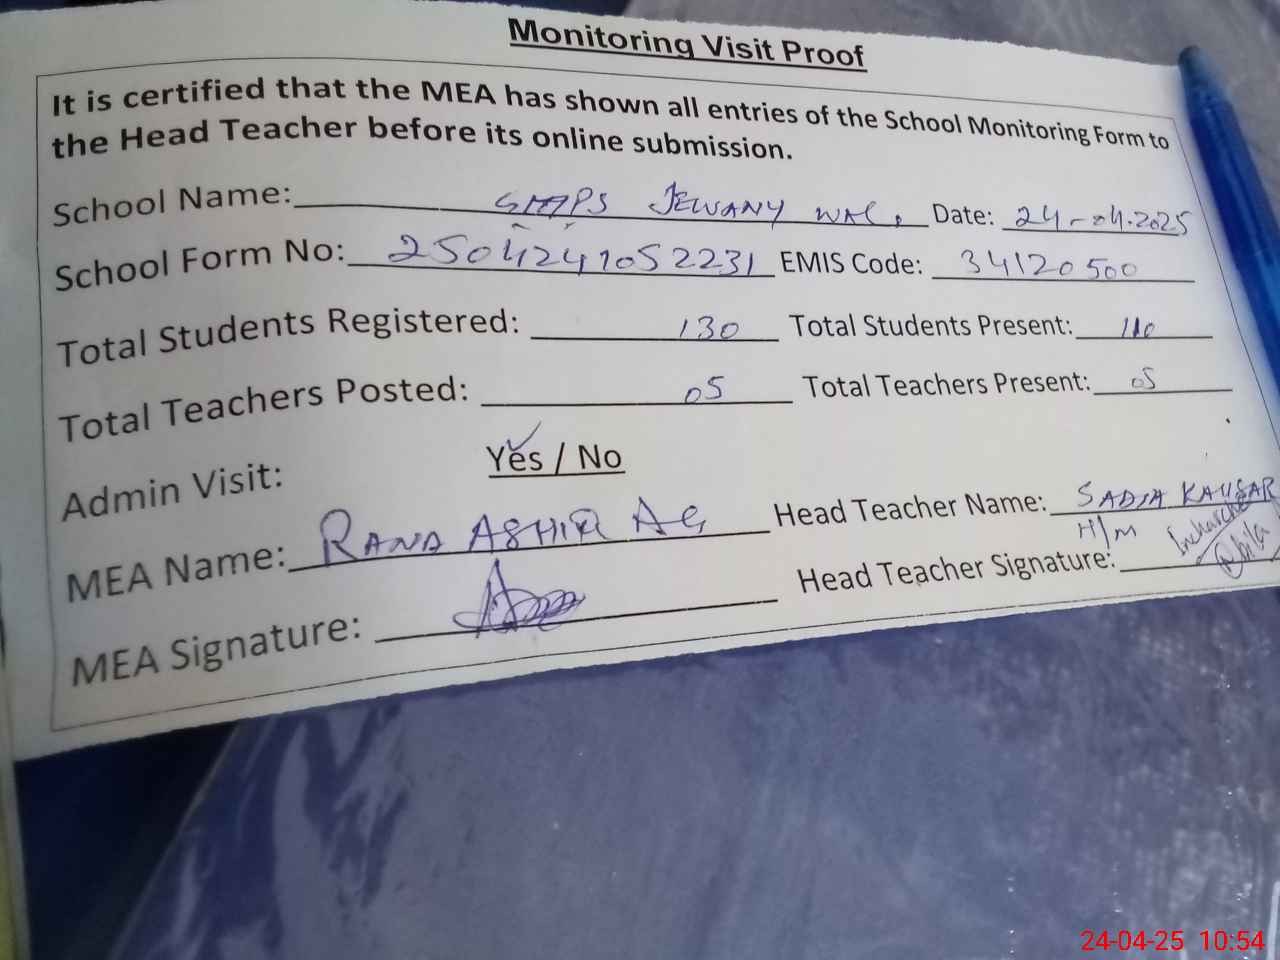 Monitoring Visit Proof
It is certified that the MEA has shown all entries of the School Monitoring Form to
the Head Teacher before its online submission.
School Name: GMPS JEWANY WAL, Date: 24-04-2025
School Form No: 2504241052231 EMIS Code: 34120500
Total Students Registered: 130 Total Students Present: 110
Total Teachers Posted: 05 Total Teachers Present: 05
Admin Visit: Yes / No
MEA Name: RANA ASHIR Head Teacher Name: SADIA KAUSAR
H/M Incharge
MEA Signature: Head Teacher Signature:
24-04-25 10:54